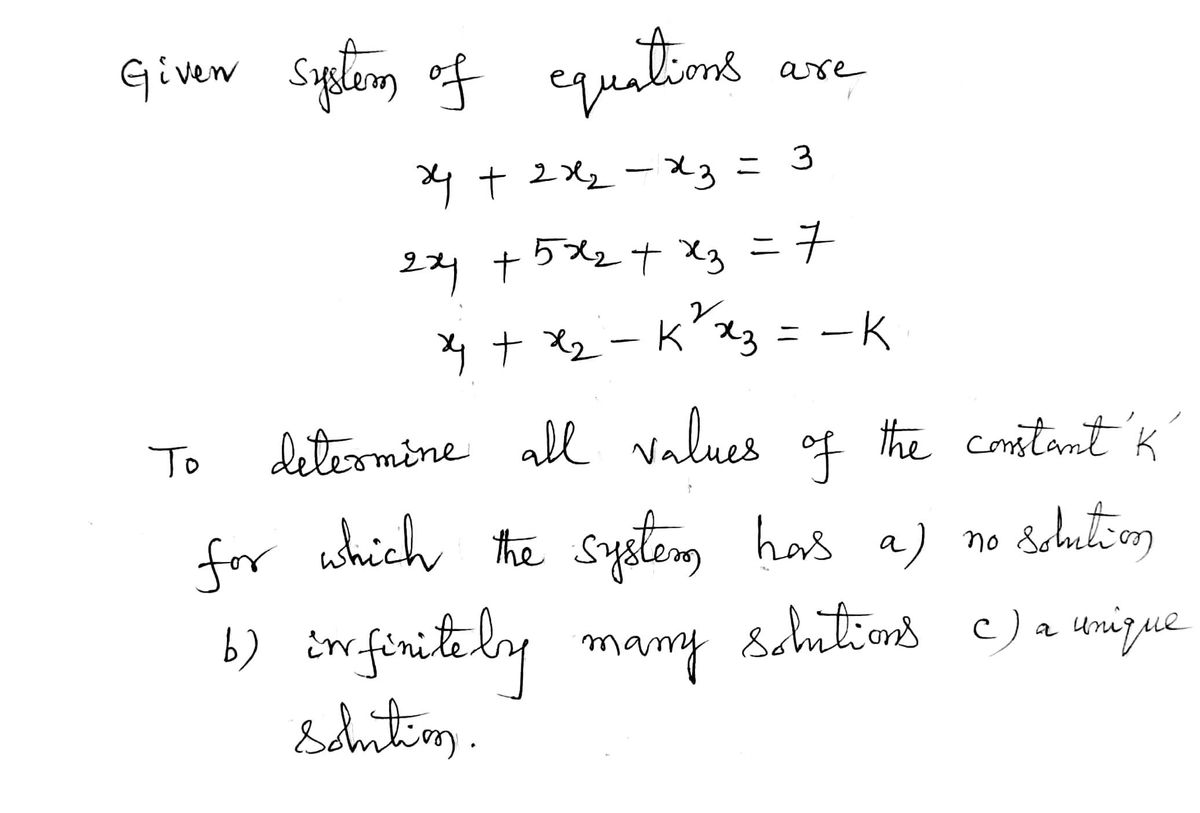 Given system of equations are
x₁ + 2x₂ - x₃ = 3
2x₁ + 5x₂ + x₃ = 7
x₁ + x₂ - K²x₃ = -K
To determine all values of the constant 'K'
for which the system has a) no solution
b) infinitely many solutions c) a unique
solution.